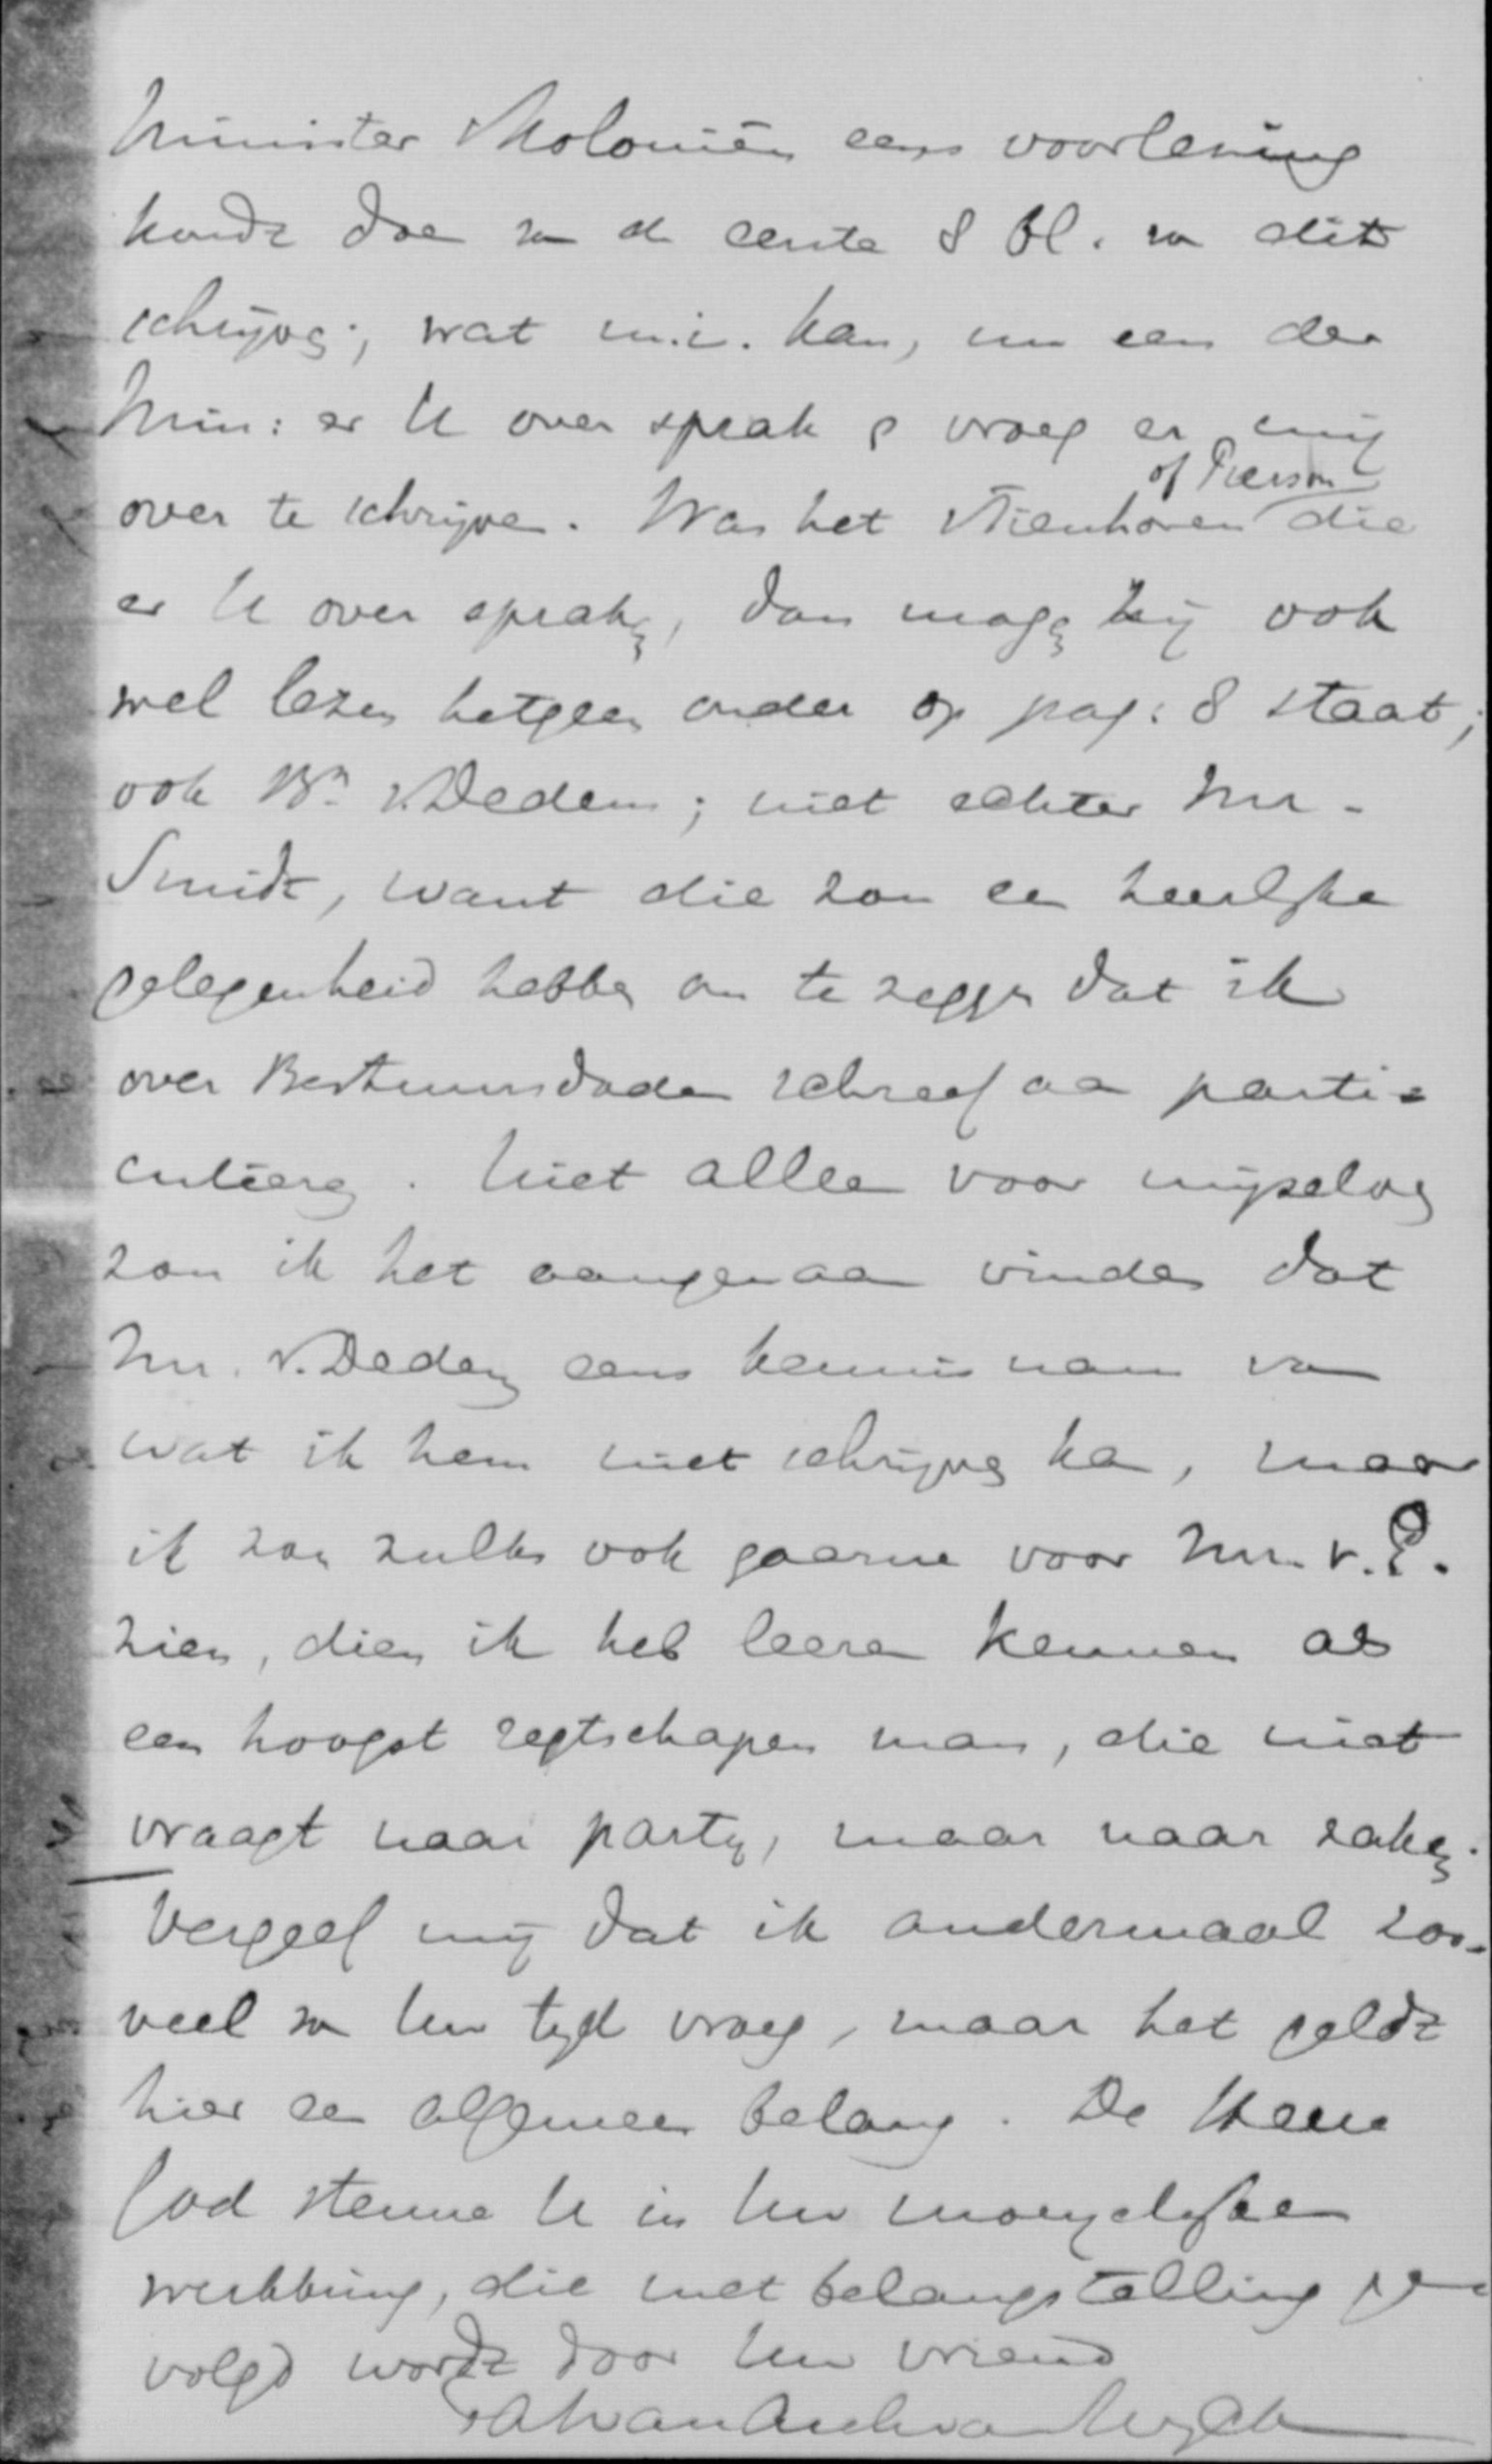 Minister v Koloniën eens voorlezing
kondt doen van de eerste 8 bl. van dit
schrijven; wat m.i. kan, nu een der
Min: er U over sprak & vroeg er mij
over te schrijven. Was het v Tienhoven of Pierson die
er U over spraken, dan mogen zij ook
wel lezen hetgeen onder op pag: 8 staat;
ook Bn v Dedem; niet echter Mr.
Smidt, want die zou een heerlijke
gelegenheid hebben om te zeggen dat ik
over Bestuursdaden schreef aan parti=
culieren. Niet alleen voor mijzelven
zou ik het aangenaam vinden dat
Mr. v. Dedem eens kennis nam van
wat ik hem niet schrijven kan, maar
ik zou zulks ook gaarne voor Mr. v.
zien, dien ik heb leeren kennen als
een hoogst regtschapen man, die niet
vraagt naar party, maar naar zaken.
Vergeef mij dat ik andermaal zoo-
veel van Uw tyd vroeg, maar het geldt
hier een algemeen belang. De Heere
God steune U in Uw moeyelijken
werkkring, die met belangstelling ge
volgd wordt door Uw vriend